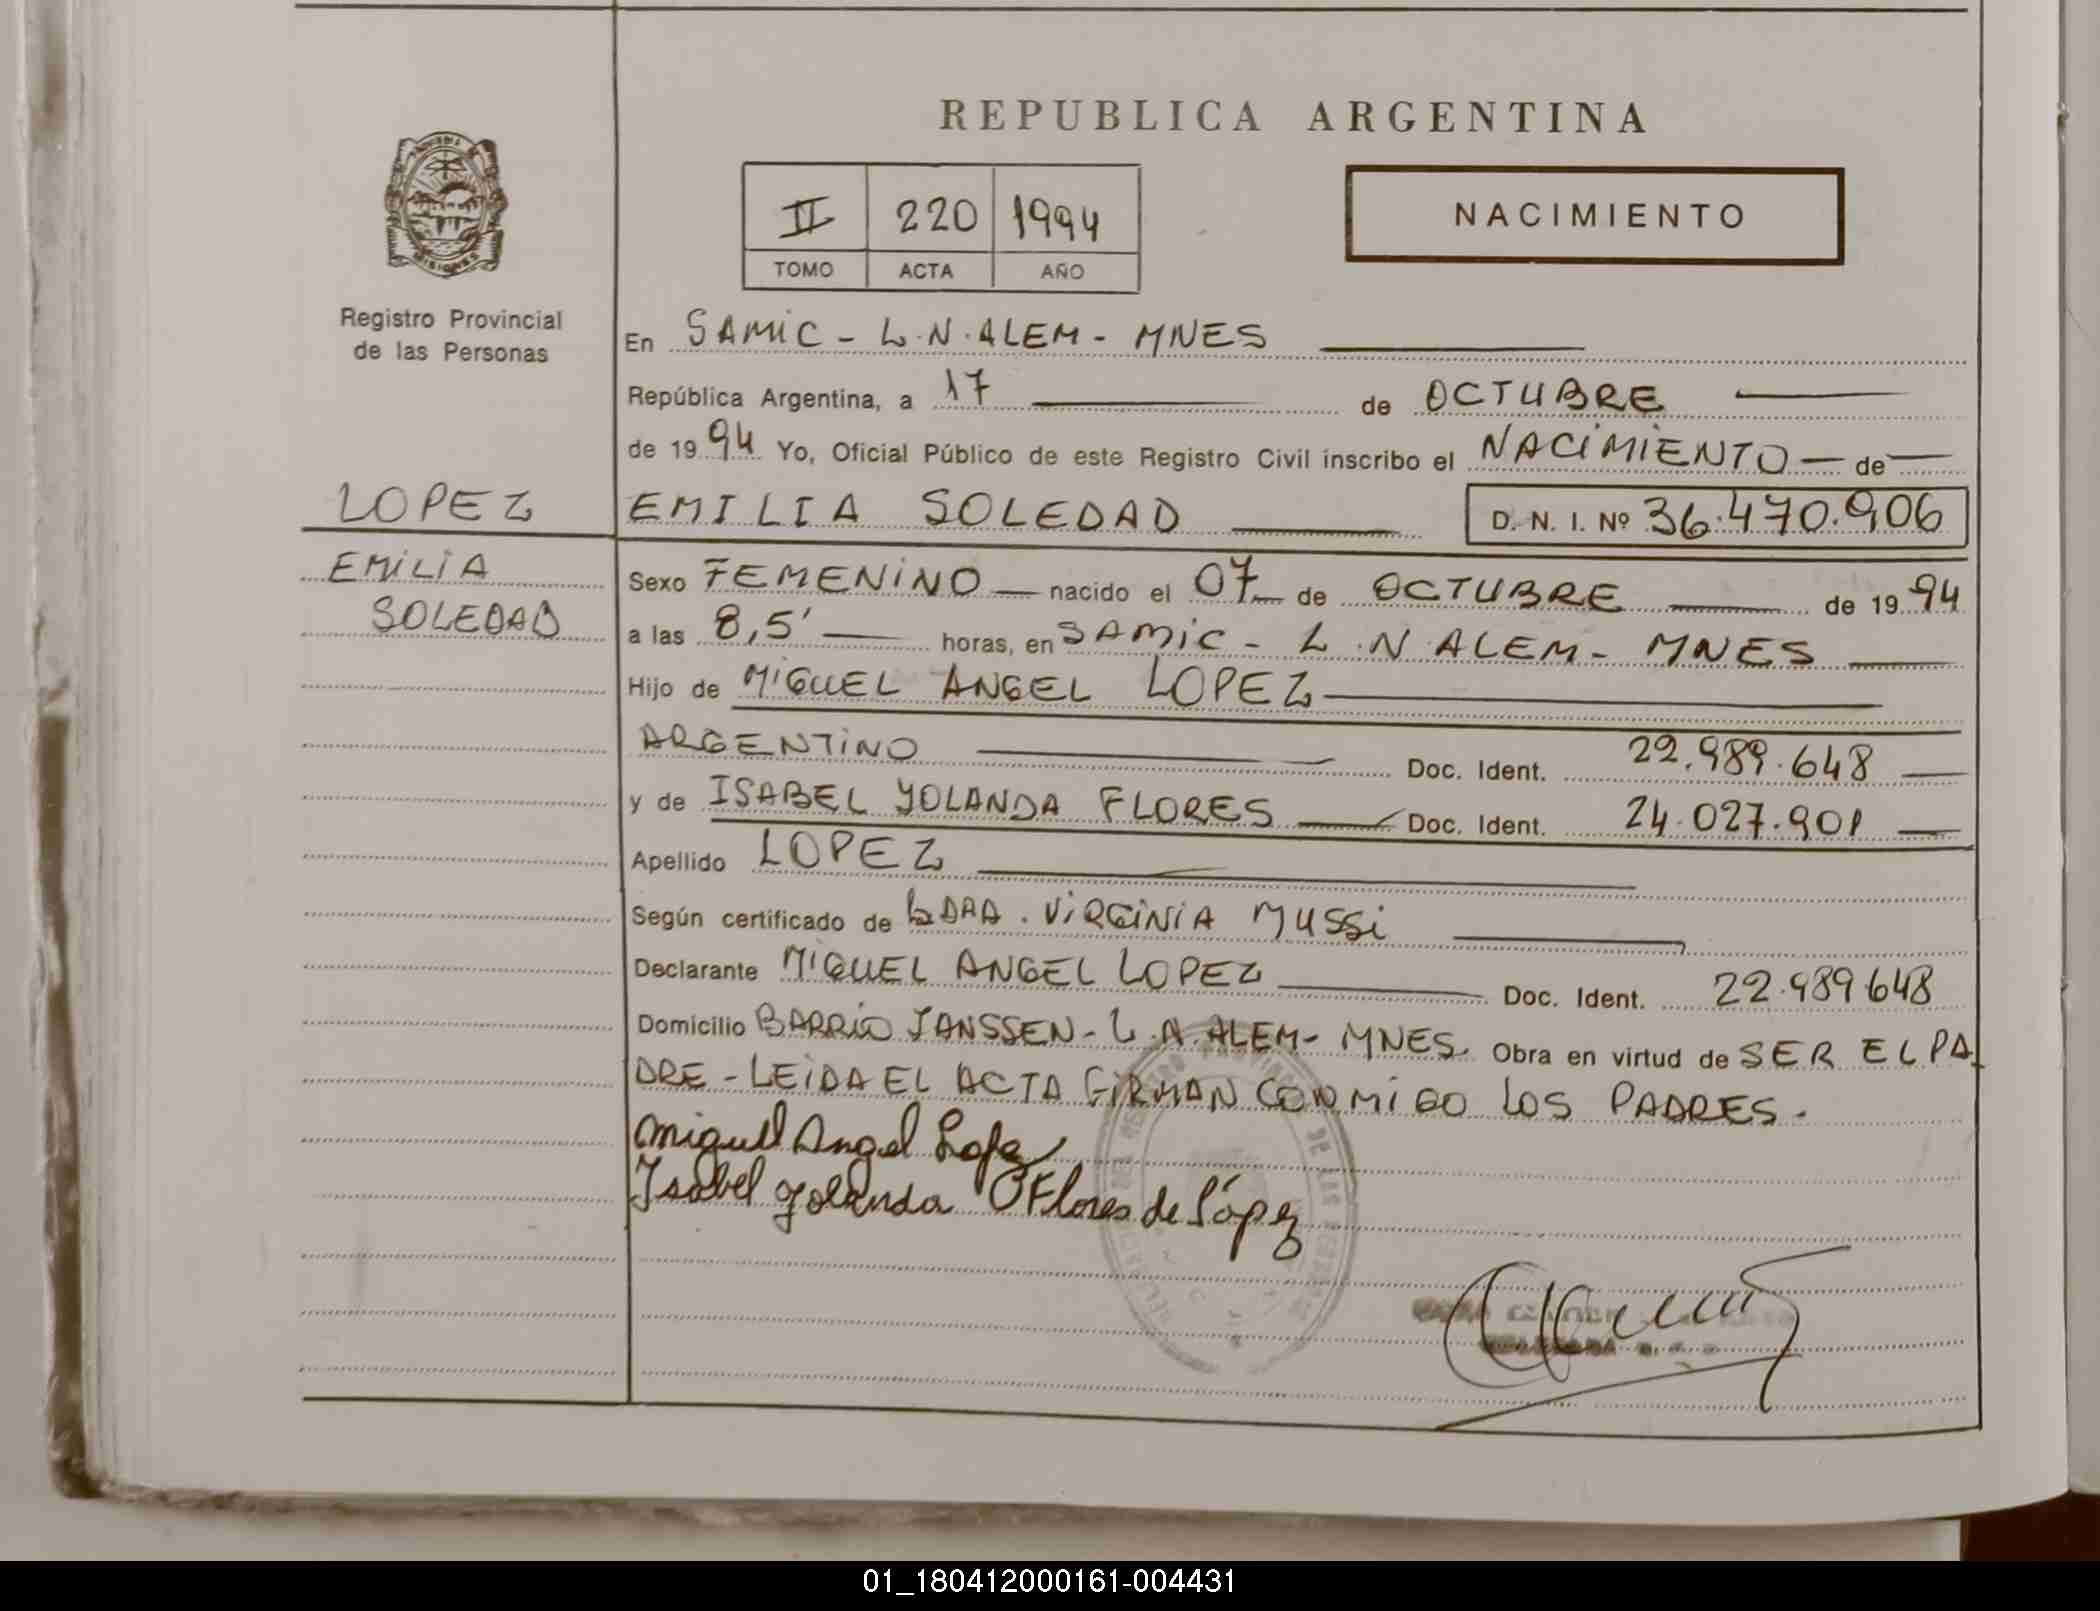 REPUBLICA ARGENTINA
II 220 1994
TOMO ACTA AÑO
NACIMIENTO
MISIONES
Registro Provincial
de las Personas
LOPEZ
EMILIA
SOLEDAD
En SAMIC - L.N.ALEM - MNES
República Argentina, a 17 de OCTUBRE
de 1994 Yo, Oficial Público de este Registro Civil inscribo el NACIMIENTO de
EMILIA SOLEDAD D. N. I. Nº 36.470.906
Sexo FEMENINO nacido el 07 de OCTUBRE de 1994
a las 8,5' horas, en SAMIC - L.N ALEM - MNES
Hijo de MIGUEL ANGEL LOPEZ
ARGENTINO Doc. Ident. 22.989.648
y de ISABEL YOLANDA FLORES Doc. Ident. 24.027.901
Apellido LOPEZ
Según certificado de LA DRA. VIRGINIA MUSSI
Declarante MIGUEL ANGEL LOPEZ Doc. Ident. 22.989648
Domicilio BARRIO JANSSEN - L.N.ALEM - MNES. Obra en virtud de SER EL PA
DRE - LEIDA EL ACTA FIRMAN CONMIGO LOS PADRES.
Miguel Angel Lopez
Isabel Yolanda Flores de López
01_180412000161-004431